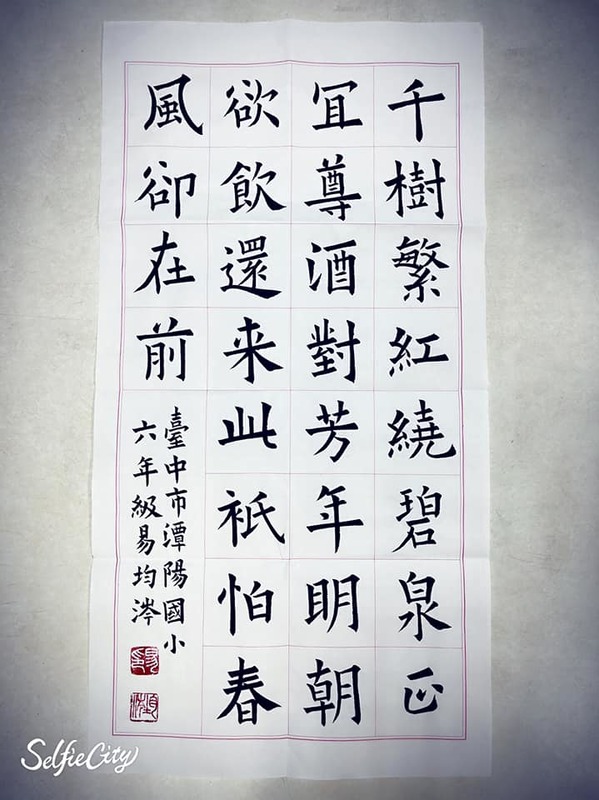 千樹繁紅繞碧泉正
冝尊酒對芳年明朝
欲飲還来此衹怕春
風卻在前
臺中市潭陽國小
六年級易均涔
SelfieCity